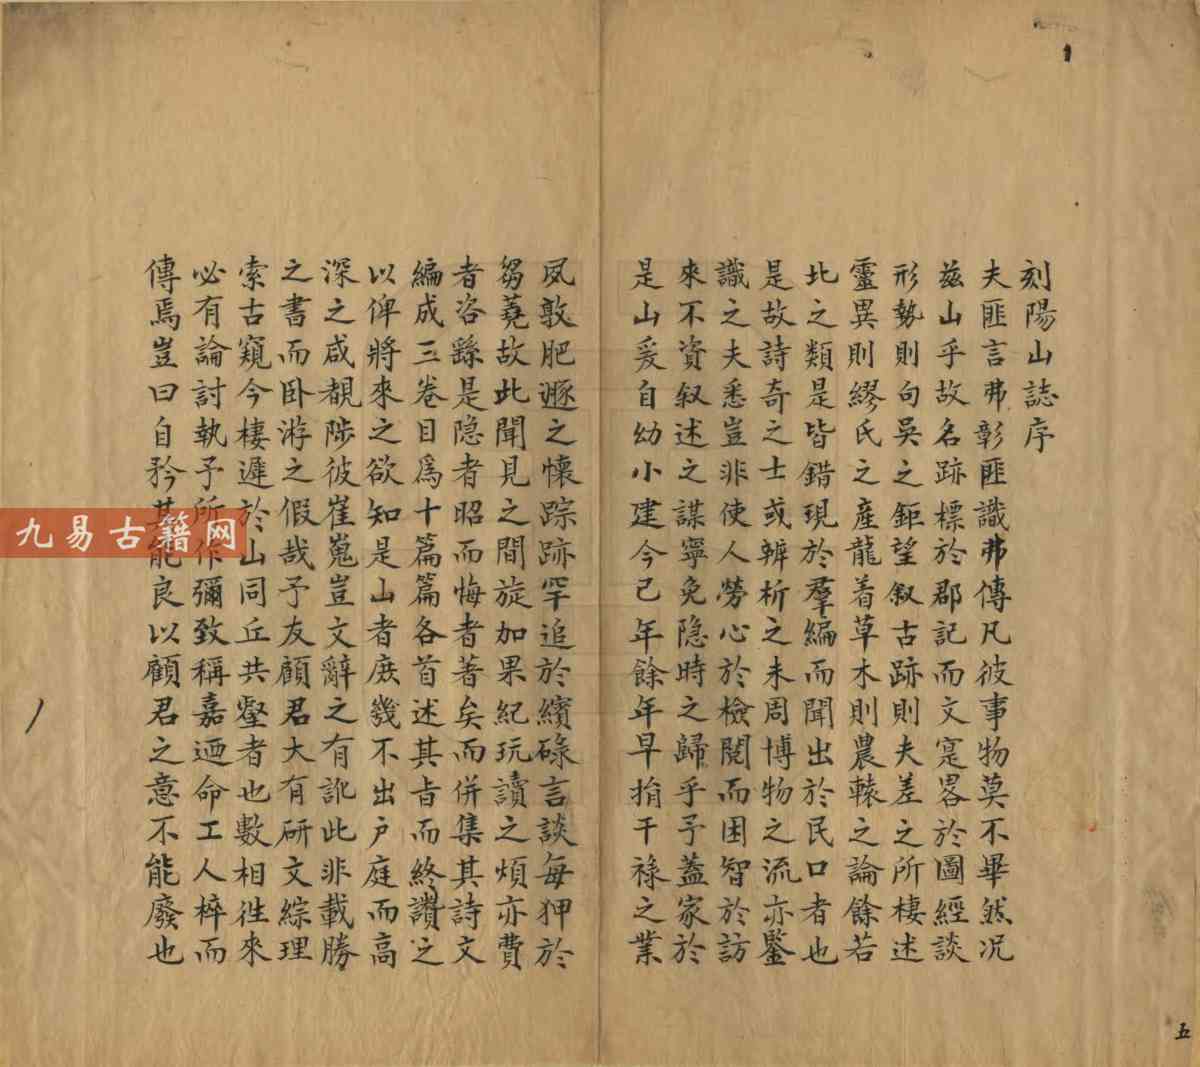 刻陽山誌序
夫匪言弗彰匪識弗傳凡彼事物莫不畢然况
兹山乎故名跡標於郡記而文寔畧於圖經談
形勢則句吳之鉅望叙古跡則夫差之所棲述
靈異則繆氏之產龍着草木則農轅之論餘若
此之類是皆錯現於羣編而聞出於民口者也
是故詩奇之士或辨析之未周博物之流亦鑒
識之夫悉豈非使人勞心於檢閱而困智於訪
來不資叙述之謀寧免隐時之歸乎予蓋家於
是山爰自幼小建今己年餘年早捐干祿之業
夙敦肥遯之懷踪跡罕追於繽碌言談每狎於
蒭蕘故此聞見之間旋加果紀玩讀之煩亦費
者咨繇是隐者昭而悔者著矣而併集其詩文
編成三卷目爲十篇篇各首述其旨而終讚之
以俾將來之欲知是山者庶幾不出户庭而高
深之咸覩陟彼崔嵬豈文辭之有訛此非載勝
之書而卧游之假哉予友顧君大有研文綜理
索古窺今棲遲於山同丘共壑者也數相徃來
必有論討執予所作彌致稱嘉迺命工人梓而
傳焉豈曰自矜其能良以顧君之意不能廢也
五
九易古籍网